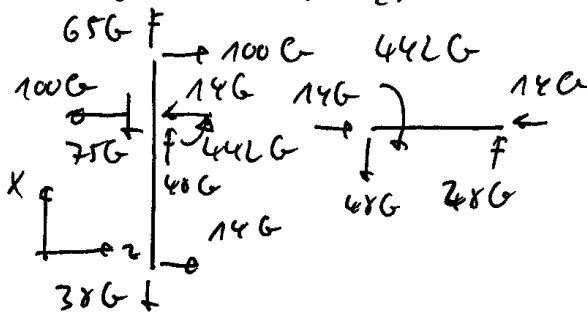 65G
100G 442G
100G 14G 14G 14G
75G 442G
48G 48G 28G
x
14G
z
38G